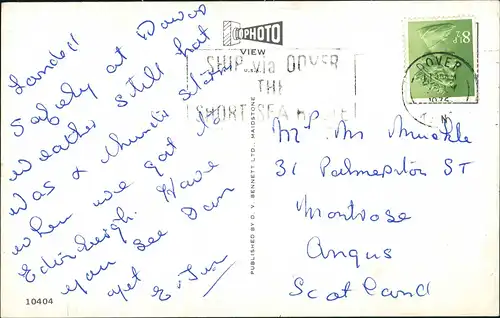 Landed
Safely at Dover
weather still hot
was a thunder storm
when we got to
Edinburgh. Have
you see Dan
yet E + Jim
10404
PHOTO
VIEW
PUBLISHED BY D. V. BENNETT LTD., MAIDSTONE
SHIP via DOVER
THE
SHORT SEA ROUTE
DOVER
8½P
Mr Mr Muckle
31 Palmerston ST
Montrose
Angus
Scotland